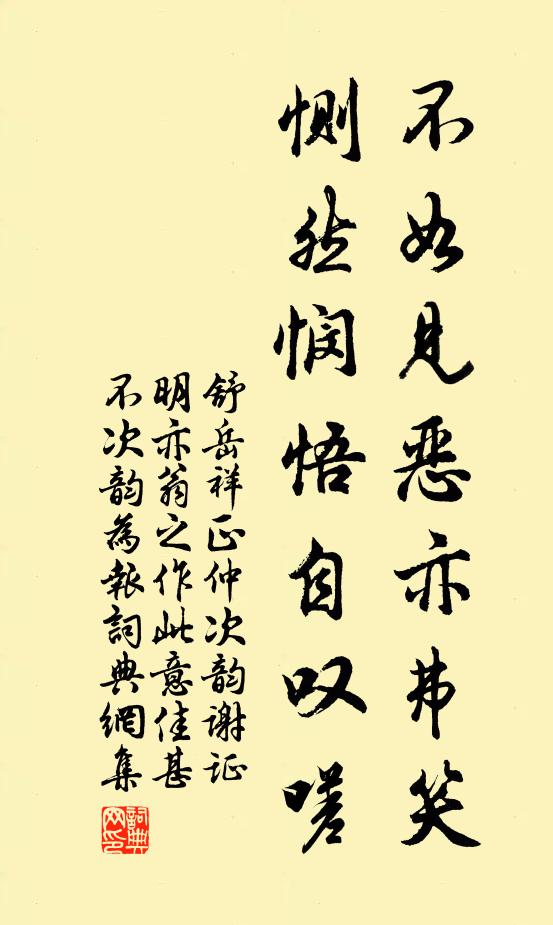 不如见恶亦弗笑
恻然悯悟自叹嗟
舒岳祥正仲次韵谢证
明亦翁之作此意佳甚
不次韵为报詞典網集
詞典網印